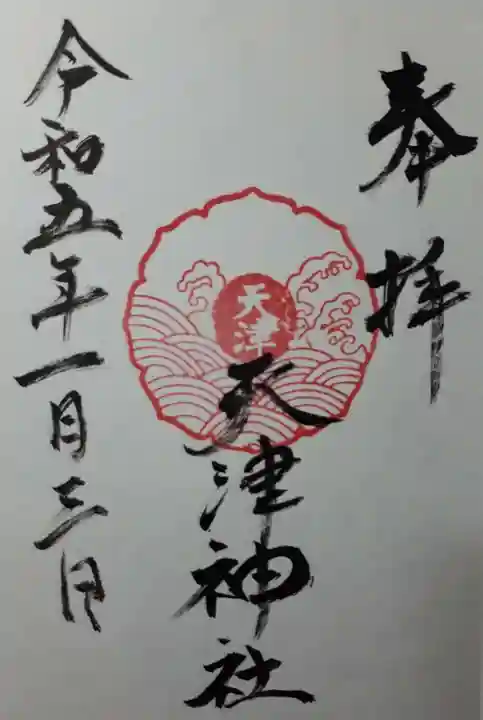 奉拝
天津
天津神社
令和五年一月三日